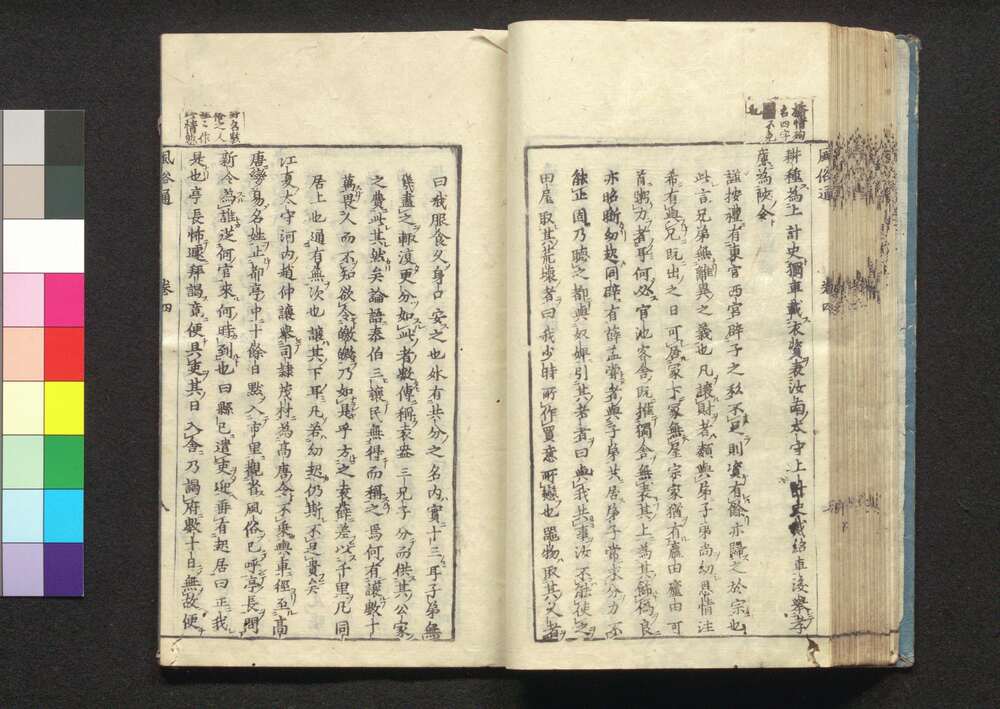 風俗通 卷四
耕種為上計史獨車載衣資表汝南太守上計史戴紹車後舉孝
廉為陝令
謹按禮有東宮西宮辟子之私不足則資有餘亦歸之於宗也
此言兄弟無離異之義也凡讓財者類與弟子弟尚幼恩情注
希有與兄既出之日可居冢下冢無屋宗家猶有羸田廬田可
首粥力者耳何必官池客舍既推獨舍無表其上為其飾偽良
亦昭晰幼起同辟有薛孟嘗者與弟子共居弟子常求分力不
能止固乃聽之都與奴婢引其老者曰與我共事汝不能使之
田屋取其荒壞者曰我少時所作買意所戀也器物取其久者
曰我服食久身口安之也外有共分之名內實十三耳子弟無
幾盡之輒復更分如此者數傳稱袁盎三兄子分而供其公家
之費此其然矣論語泰伯三讓民無得而稱之焉何有讓數十
萬畏人而不知欲令皦皦乃如是乎方之袁薛差以千里凡同
居上也通有無次也讓其下耳凡若幼起仍斯不足貴矣
江夏太守河內趙仲讓舉司隸茂材為高唐令不乘輿車徑至高
唐變易名姓止都亭中十餘日默入市里觀省風俗已呼亭長問
新令為誰從何官來何時到也曰縣已遣吏迎垂有起居曰正我
是也亭長怖遽拜謁竟便具吏其日入舍乃謁府數十日無故便
風俗通 卷四 八